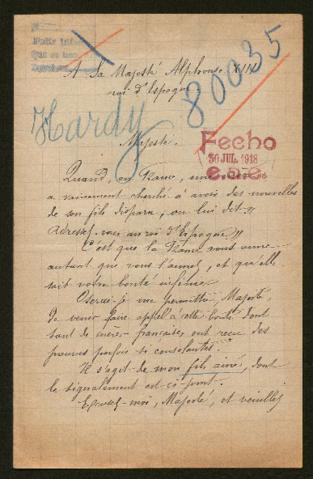 A Sa Majesté Alphonse XIII
roi d'Espagne
80035
Hardy
Majesté.
Fecho
30 JUL. 1918
Quand, en France, une
a vainement cherché à avoir des nouvelles
de son fils disparu, on lui dit "
adressez-vous au roi d'Espagne"
C'est que la France vous aime
autant que vous l'aimez, et qu'elle
sait votre bonté infinie.
Oserai-je me permettre, Majesté,
de venir faire appel à cette bonté dont
tant de mères françaises ont reçu des
preuves parfois si consolantes?
Il s'agit de mon fils aîné, dont
le signalement est ci-joint.
Excusez-moi, Majesté, et veuillez